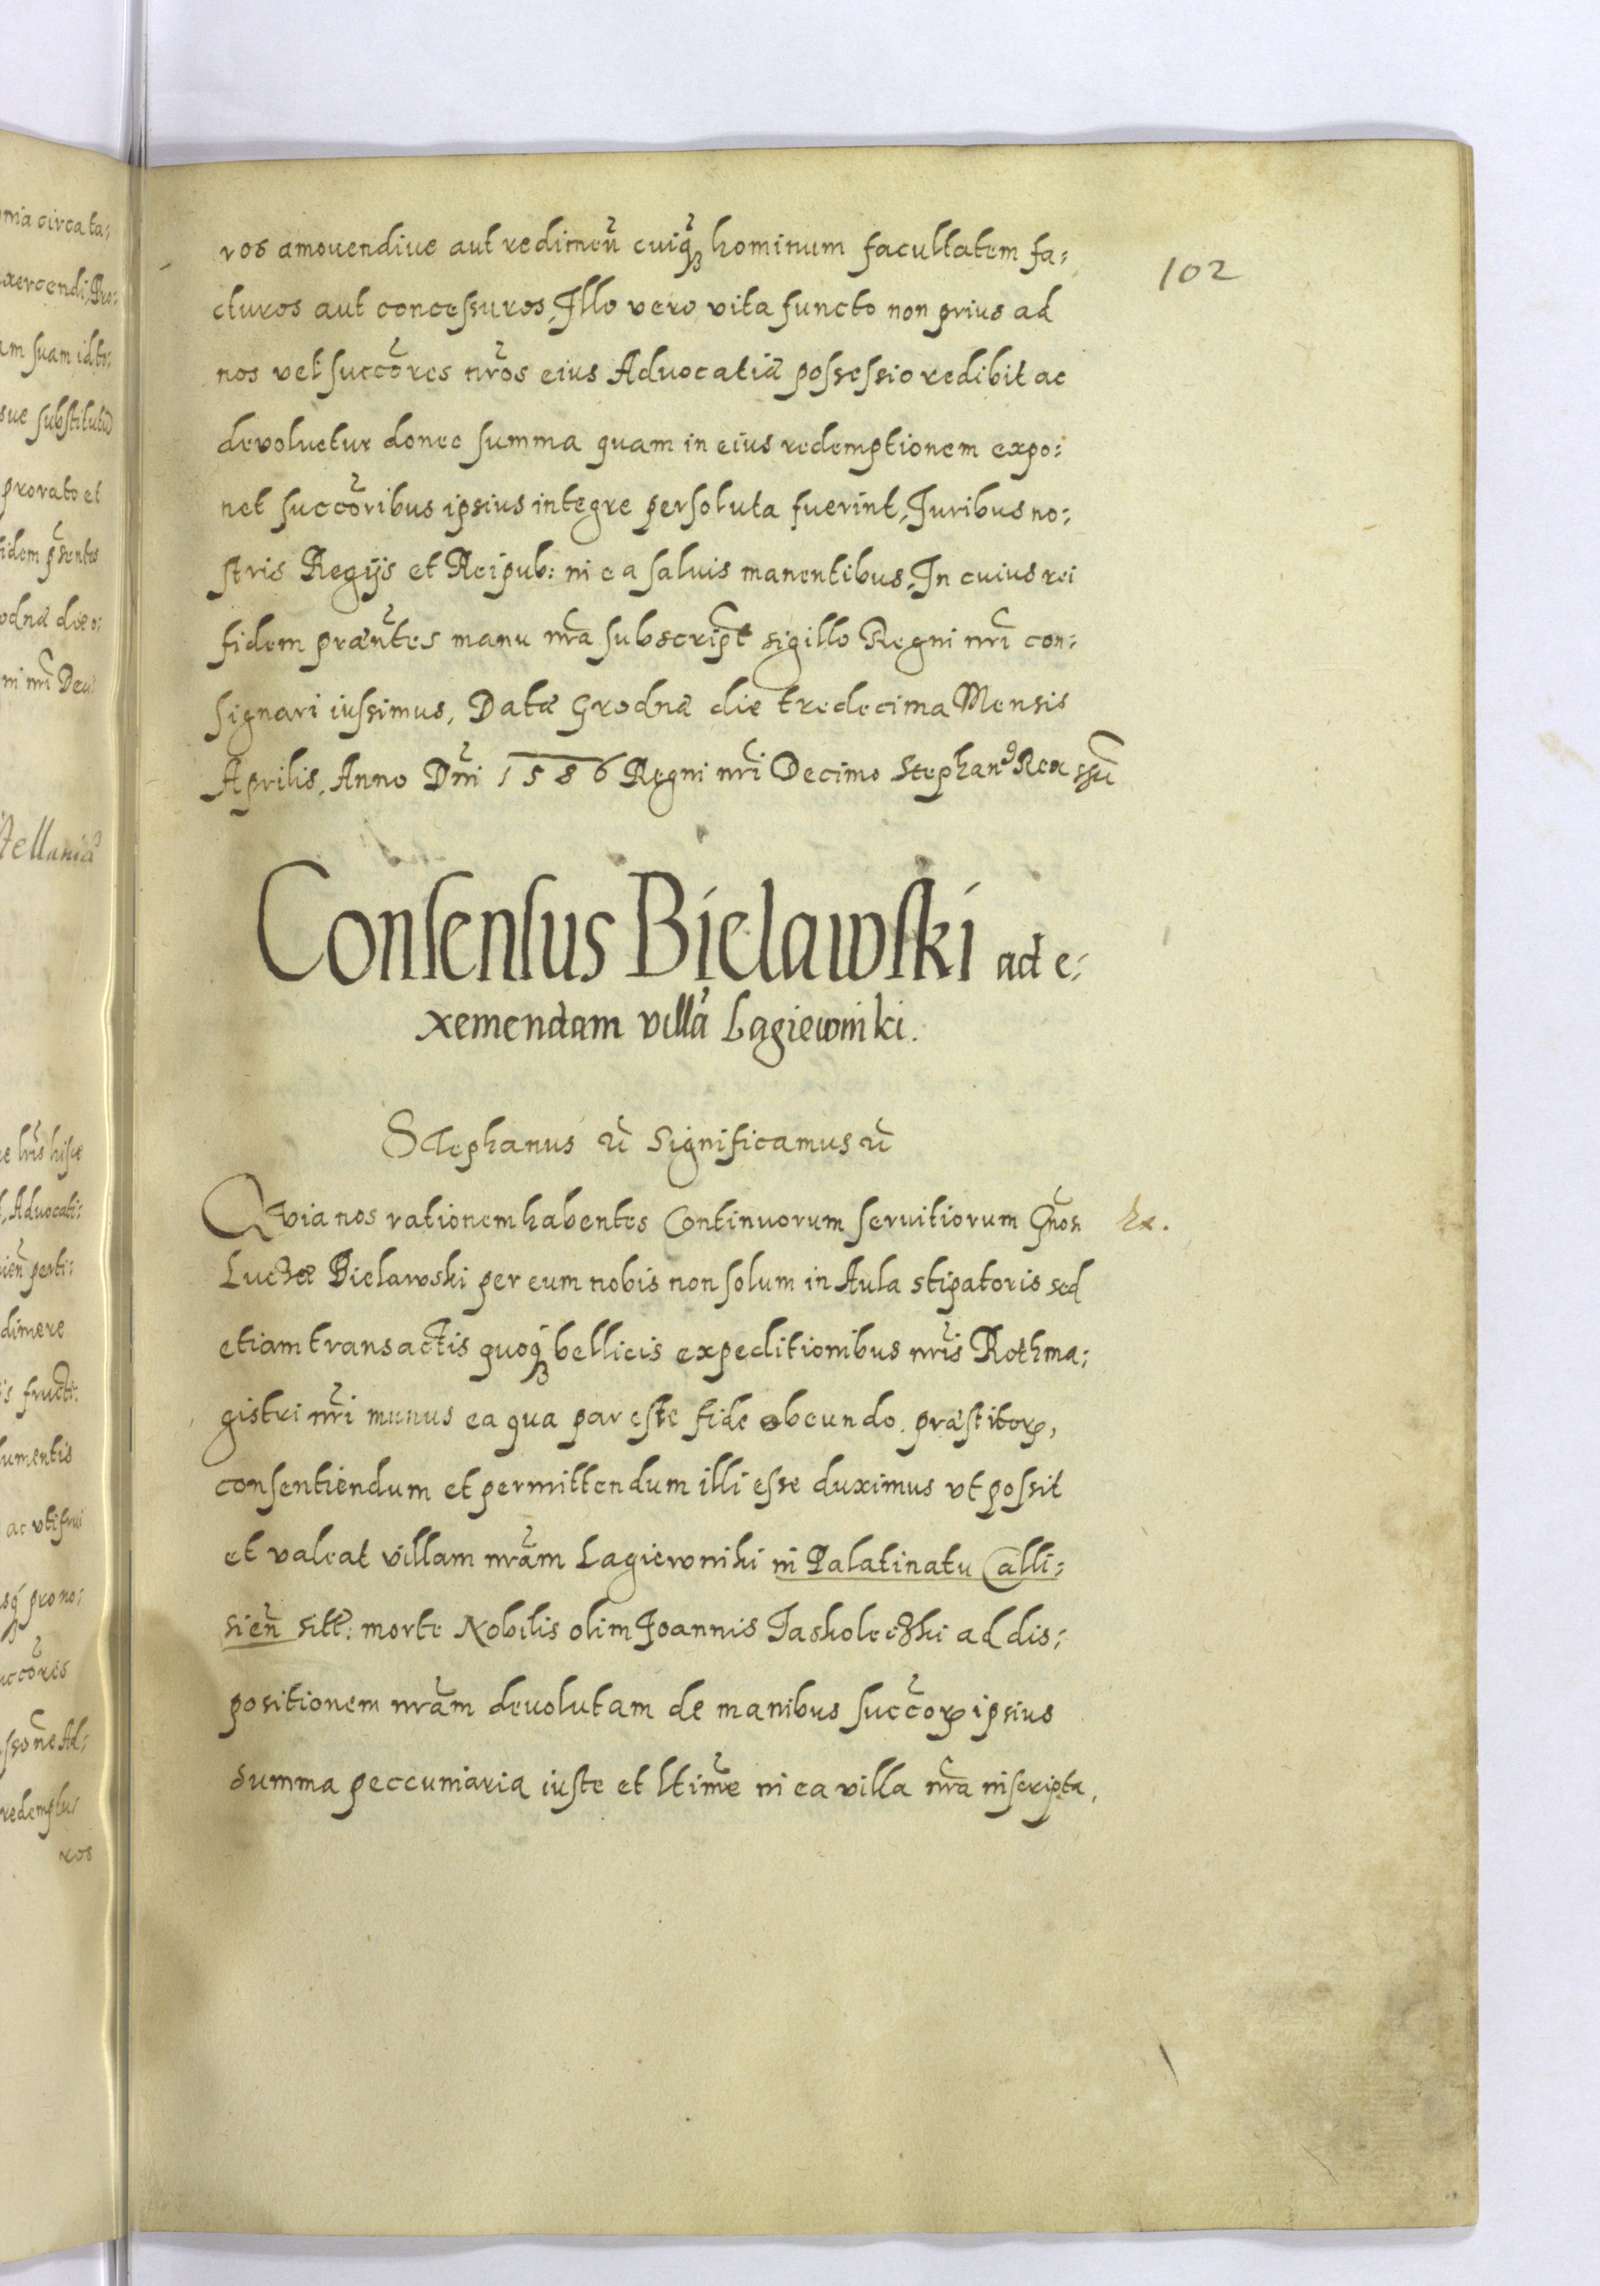 102
ros amouendiue aut redimen̄ cuiq₃ hominum facultatem fa:
cturos aut concessuros, Illo vero vita functo non prius ad
nos vel succōres nr̄os eius Aduocatiæ possessio redibit ac
devoluetur donec summa quam in eius redemptionem expo:
net succōribus ipsius integre persoluta fuerint, Juribus no:
stris Regijs et Reipub: in ea saluis manentibus, In cuius rei
fidem præn̄tes manu nr̄a subscript sigillo Regni nr̄i con:
signari iussimus, Datæ Grodnæ die tredecima Mensis
Aprilis, Anno Dn̄i 1586 Regni nr̄i Decimo Stephanꝰ Rex sst̄
Consensus Bielawski ad e:
xemendam villā Lagiewniki.
Stephanus rc̄ Significamus rc̄
Quia nos rationem habentes Continuorum seruitiorum Gn̄osi
Lucæ Bielawski per eum nobis non solum in Aula stipatoris sed
etiam transactis quoq₃ bellicis expeditionibus nr̄is Rothma:
gistri nr̄i munus ea qua par este fide obeundo. præstitoꝝ,
consentiendum et permittendum illi esse duximus vt possit
et valeat villam nr̄am Lagiewniki in Palatinatu Calli:
sien̄ sitt: morte Nobilis olim Joannis Jaskoleczki ad dis:
positionem nr̄am deuolutam de manibus succoꝝ ipsius
summa peccuniaria iuste et ltim̄e in ea villa nr̄a inscripta,